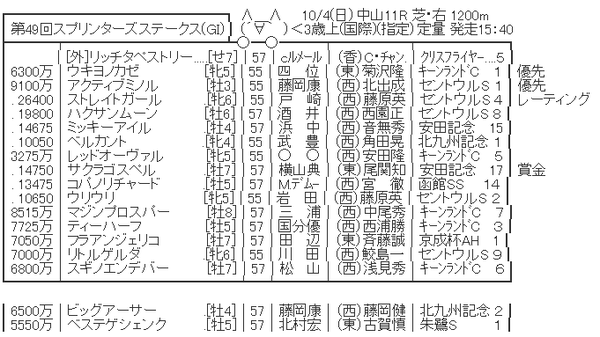 第49回スプリンターズステークス(GI) ∧ ∧ 10/4(日) 中山11R 芝・右 1200m
(´∀`) <3歳上(国際)(指定) 定量 発走15:40
[外]リッチタペストリー....[せ7] 57 cルメール (香)C・チャン. クリスフライヤー....5
6300万 ウキヨノカゼ .[牝5] 55 四 位 (東)菊沢隆 キーンランドC 1 優先
9100万 アクティブミノル .[牡3] 55 藤岡康 (西)北出成 セントウルS 1 優先
.26400 ストレイトガール .[牝6] 55 戸 崎 (西)藤原英 セントウルS 4 レーティング
.19800 ハクサンムーン .[牡6] 57 酒 井 (西)西園正 セントウルS 2
.14675 ミッキーアイル .[牡4] 57 浜 中 (西)音無秀 安田記念 15
.10050 ベルカント .[牝4] 55 武 豊 (西)角田晃 北九州記念 1
3275万 レッドオーヴァル .[牝5] 55 ○ ○ (西)安田隆 キーンランドC 5
.14750 サクラゴスペル .[牡7] 57 横山典 (東)尾関知 安田記念 17 賞金
.13475 コパノリチャード .[牡5] 57 M.デムー (西)宮 徹 函館SS 14
.10650 ウリウリ .[牝5] 55 岩 田 (西)藤原英 セントウルS 2
8515万 マジンプロスパー .[牡8] 57 三 浦 (西)中尾秀 キーンランドC 7
7725万 ティーハーフ .[牡5] 57 国分優 (西)西浦勝 キーンランドC 3
7050万 フラアンジェリコ .[牡7] 57 田 辺 (東)斉藤誠 京成杯AH 1
7000万 リトルゲルダ .[牝6] 55 川 田 (西)鮫島一 セントウルS 9
6800万 スギノエンデバー .[牡7] 57 松 山 (西)浅見秀 キーンランドC 6
6500万 ビッグアーサー .[牡4] 57 藤岡康 (西)藤岡健 北九州記念 2
5550万 ベステゲシェンク .[牡5] 57 北村宏 (東)古賀慎 朱鷺S 1